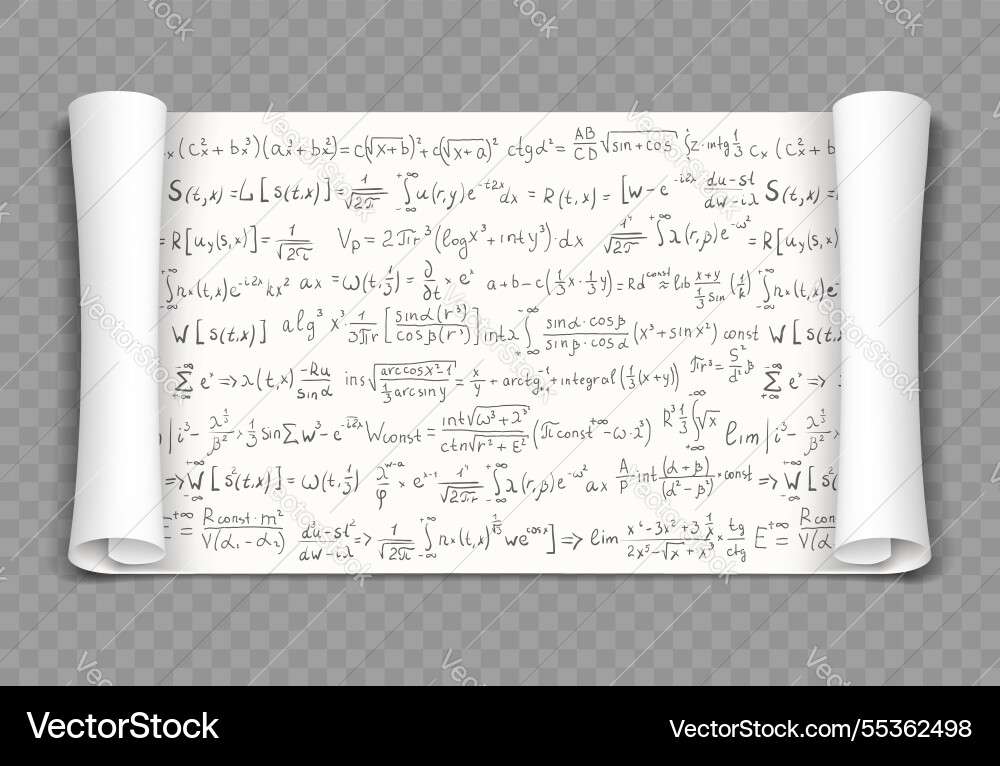 x (c²x + bx³)(a³x + bx²) = c(√x+b)² + c(√x+a)² ctgα² = AB/CD √sin + cos ∫z·intg 1/3 cx (c²x + b
S(t,x) = L[s(t,x)] = 1/√2π ∫u(r,y)e^-t2x dx = R(t,x) = [w-e^-i2x du-sl/dw-iλ S(t,x) =
= R[uy(s,x)] = 1/√2π Vp = 2πr³(logx³ + inty³)·dx 1"/√2π ∫λ(r,β)e^-ω² = R[uy(s,x)
+∞∫-∞ nx(t,x)e^-i2x kx² ax = ω(t,1/3) = ∂/∂t × eˣ a+b-c(1/3x·1/3y) = Rd^const ≈ lib x+y/(1/3 sin) (1/k) +∞∫-∞ nx(t,x)e
W[s(t,x)] alg³ x³·1/3πr [sinα(r³)/cosβ(r³)] intλ ∫ sinα·cosβ/sinβ·cosα (x³+sinx²) const W[s(t,x
∑ eˣ => λ(t,x) -Ru/sinα ins √arccosx²-1'/(1/3 arcsiny) = x/y + arctg + integral(1/3(x+y)) πr³ = S²/d² β ∑ eˣ =>
|i³ - λ^1/3/β² × 1/3 sin∑w³ - e^-i2x Wconst = int√ω³+λ³/ctn√r²+ε² (πconst^+∞ - ω·λ³) R³ 1/3 ∫√x lim |i³ - λ^1/3/β²
=> W[s²(t,x)] = ω(t,1/3) λ^w-a/φ × e^x-1 1"/√2πr ∫λ(r,β)e^-ω² ax A/P·int (α+β)/(α²-β²) × const => W[s²(
E^+∞ = Rconst·m²/V(α₁-α₂) du³-sl²/dw-iλ => 1/√2π ∫nx(t,x)^1/√3 we^cosx] => lim x⁶-3x²+3 1/x/2x⁵-√x+x³ × tg/ctg E^+∞ = Rcon/V(α
VectorStock
VectorStock.com/55362498